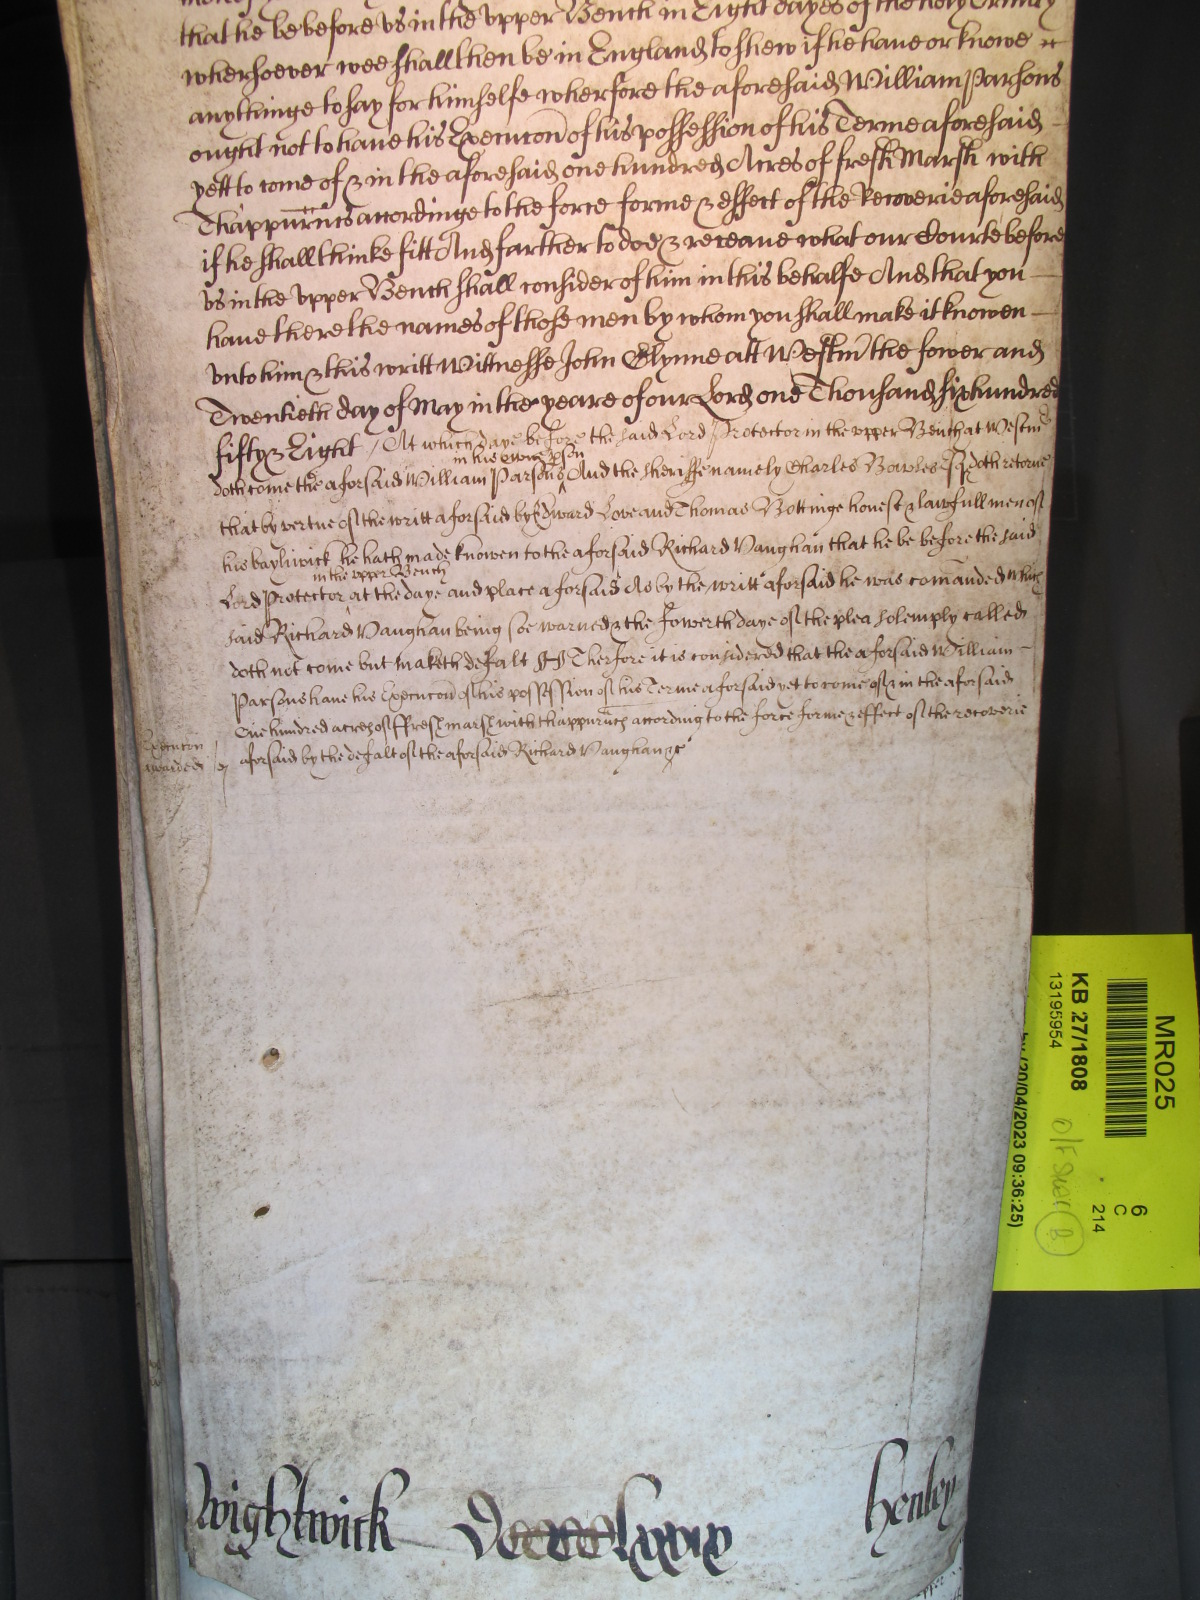 that he be before vs in the vpper Bench in Eight dayes of the holy Trinity
whersoever wee shall then be in England to shew if he haue or knowe
anythinge to say for himselfe wherfore the aforesaid William Parsons
ought not to haue his Execucon of his possession of his Terme aforesaid
yett to come of & in the aforesaid one hundred Acres of fresh Marsh with
Thappurtn̄cs accordinge to the force forme & effect of the Recoverie aforesaid
if he shall thinke fitt And farther to doe & receaue what our Courte before
vs in the vpper Bench shall consider of him in this behalfe And that you
haue there the names of those men by whom you shall make it knowen
vnto him & this writt Wittnesse John Glynne att Westm̄ the fower and
Twentieth day of May in the yeare of our Lord one Thousand six hundred
fifty & Eight / At which daye before the said Lord Protector in the vpper Bench at Westm̄
in his owne p̱son
doth come the aforsaid William Parsons And the Sheriffe namely Charles Bowles Esq̄ doth retorne
that by vertue of the writt aforsaid by Edward Love and Thomas Bottinge honest & lawfull men of
his baylwick he hath made knowen to the aforsaid Richard Vaughan that he be before the said
in the vpper Bench
Lord Protector at the daye and place aforsaid As by the writt aforsaid he was com̄anded which
said Richard Vaughan being soe warned & the fowerth daye of the plea solemply called
doth not come but maketh defalt Therfore it is considered that the aforsaid William
Parsons haue his Execucon̄ of his possession of his Terme aforsaid yet to come of & in the aforsaid
One hundred acres of ffresh marsh with thappurtn̄cs according to the force forme & effect of the recoverie
aforsaid by the defalt of the aforsaid Richard Vaughan &c
Execucon
awarded
Wightwick
lxxix
henley
MR025
KB 27/1808
13195954
6
C
214
(20/04/2023 09:36:25)